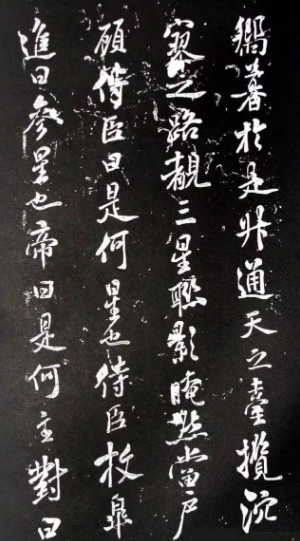 著於是升通天之臺攬泬
寥之路覩三星聯影晻然當戶
顧侍臣曰是何星也侍臣枚皋
進曰參星也帝曰是何主對曰